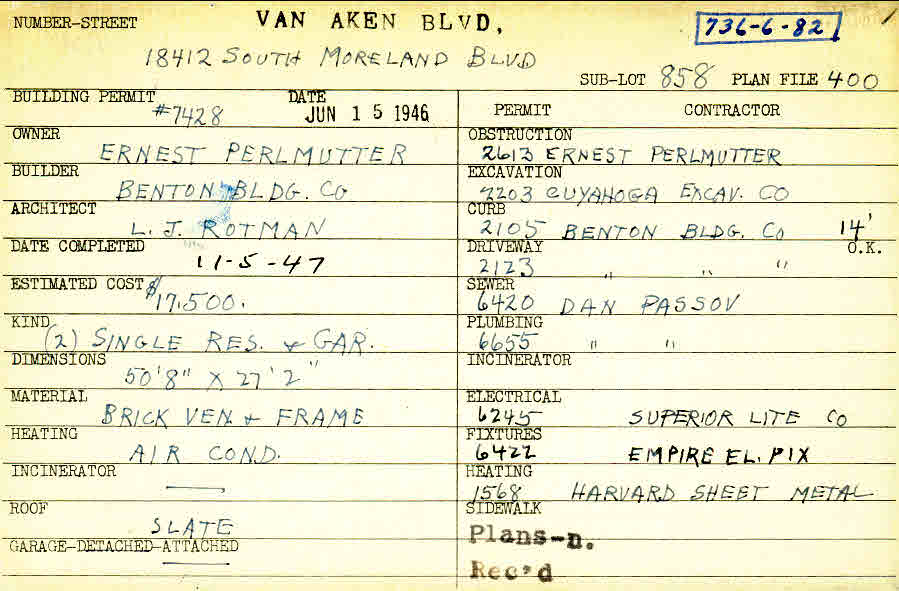 NUMBER-STREET VAN AKEN BLVD, 736-6-82
18412 SOUTH MORELAND BLVD
SUB-LOT 858 PLAN FILE 400
BUILDING PERMIT #7428 DATE JUN 15 1946
PERMIT CONTRACTOR
OWNER ERNEST PERLMUTTER
OBSTRUCTION 2613 ERNEST PERLMUTTER
BUILDER BENTON BLDG. CO
EXCAVATION 2203 CUYAHOGA EXCAV. CO
ARCHITECT L. J. ROTMAN
CURB 2105 BENTON BLDG. CO 14' O.K.
DATE COMPLETED 11-5-47
DRIVEWAY 2123 " " "
ESTIMATED COST $17,500.
SEWER 6420 DAN PASSOV
KIND (2) SINGLE RES. & GAR.
PLUMBING 6655 " "
DIMENSIONS 50'8" X 27'2"
INCINERATOR
MATERIAL BRICK VEN & FRAME
ELECTRICAL 6245 SUPERIOR LITE CO
HEATING AIR COND.
FIXTURES 6422 EMPIRE EL. FIX
INCINERATOR —
HEATING 1568 HARVARD SHEET METAL
ROOF SLATE
SIDEWALK
GARAGE-DETACHED-ATTACHED —
Plans-n.
Rec'd